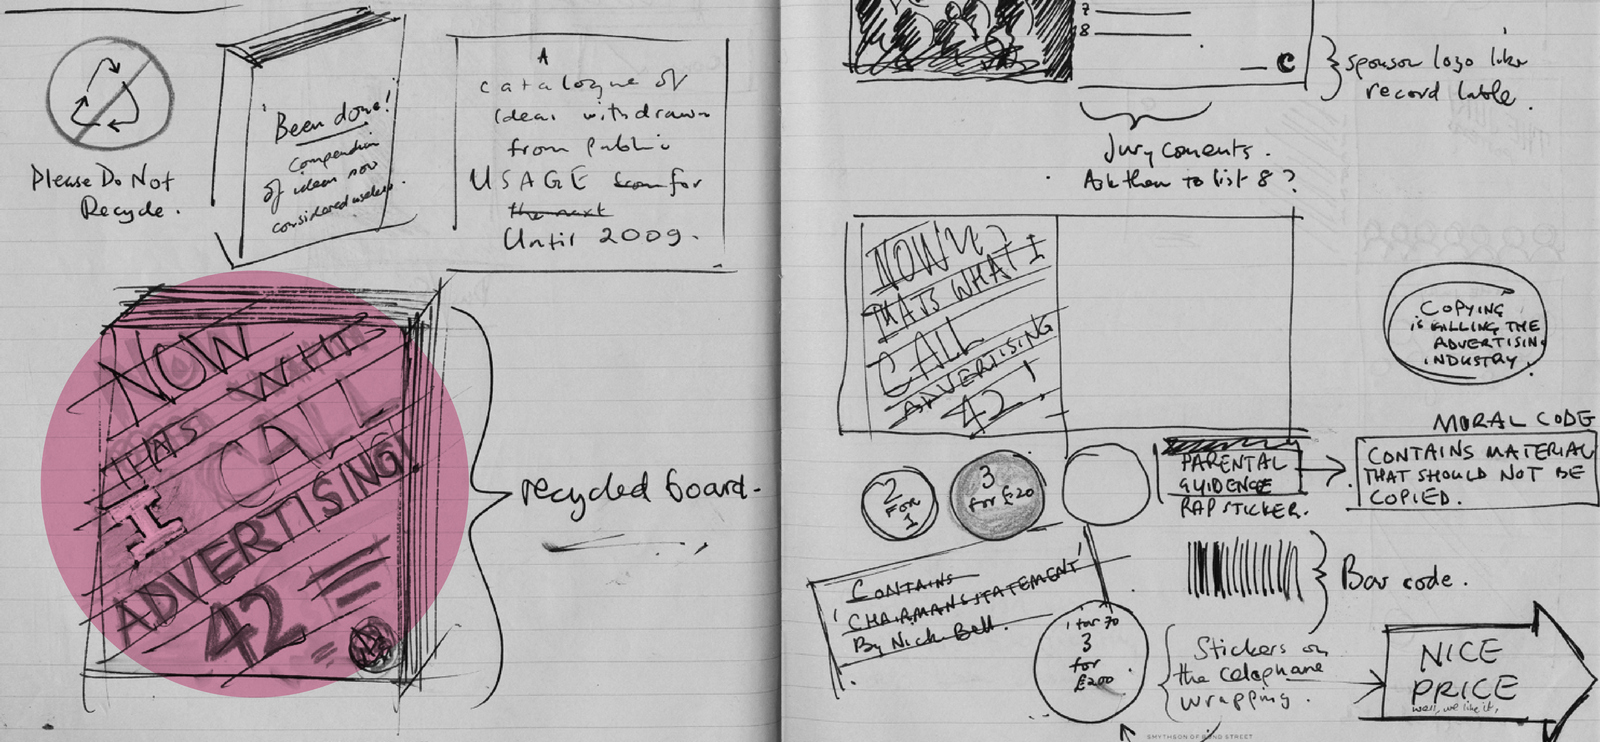 Please Do Not
Recycle.
'Been done!
Compendium
of ideas now
considered useless.
A
catalogue of
ideas withdrawn
from public
USAGE for
the next
Until 2009.
NOW
THATS WHAT
I CALL
ADVERTISING!
42
recycled board.
7
8
C
sponsor logo like
record lable.
Jury coments.
Ask them to list 8?
NOW
THATS WHAT I
CALL
ADVERTISING
42!
COPYING
IS KILLING THE
ADVERTISING
INDUSTRY.
2
FOR
1
3
for £20
PARENTAL
GUIDENCE
RAP STICKER.
MORAL CODE
CONTAINS MATERIAL
THAT SHOULD NOT BE
COPIED.
CONTAINS
'CHAIRMANS STATEMENT'
By Nick Bell.
Bar code.
1 for 70
3
for
£200
Stickers on
the celophane
wrapping.
NICE
PRICE
well, we like it,
SMYTHSON OF BOND STREET